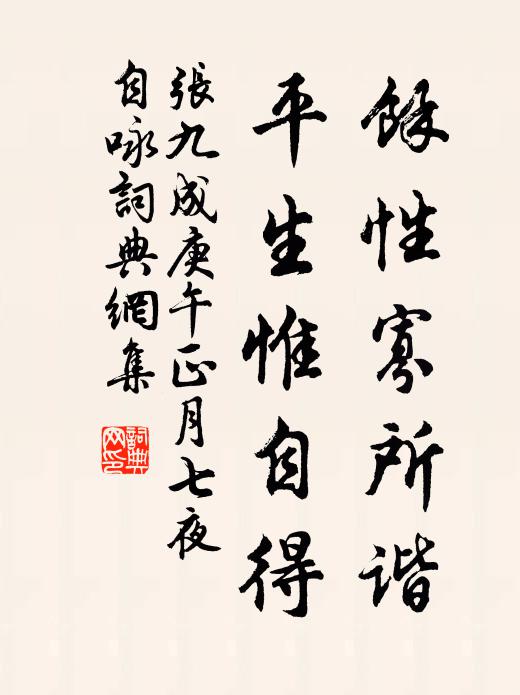 餘性寡所諧
平生惟自得
張九成庚午正月七夜
自咏詞典網集
詞典网印